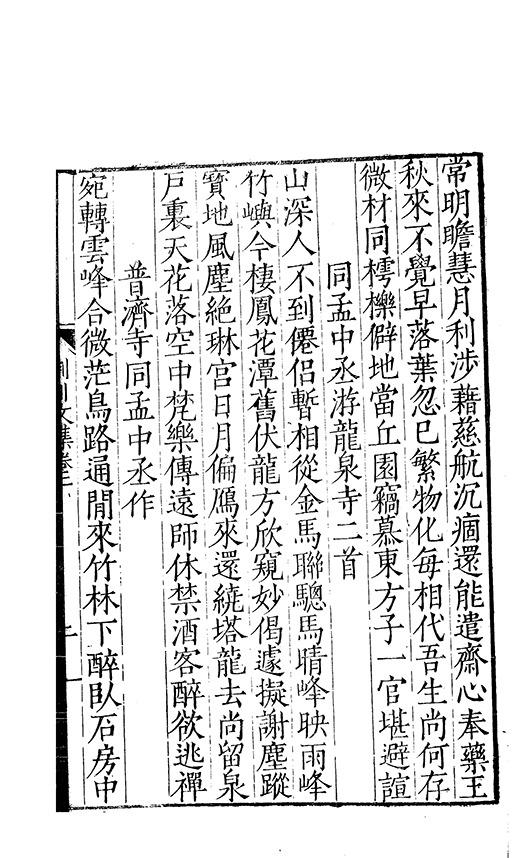 常明瞻慧月利涉藉慈航沉痼還能遣齋心奉藥王
秋來不覺早落葉忽巳繁物化每相代吾生尚何存
微材同樗櫟僻地當丘園竊慕東方子一官堪避諠
同孟中丞游龍泉寺二首
山深人不到僊侣暫相從金馬聯驄馬晴峰映雨峰
竹嶼今棲鳳花潭舊伏龍方欣窺妙偈遽擬謝塵蹤
寳地風塵絶琳宫日月偏鴈來還繞塔龍去尚留泉
戸裏天花落空中梵樂傳遠師休禁酒客醉欲逃禪
普濟寺同孟中丞作
宛轉雲峰合微茫鳥路通閒來竹林下醉臥石房中
川文集卷二